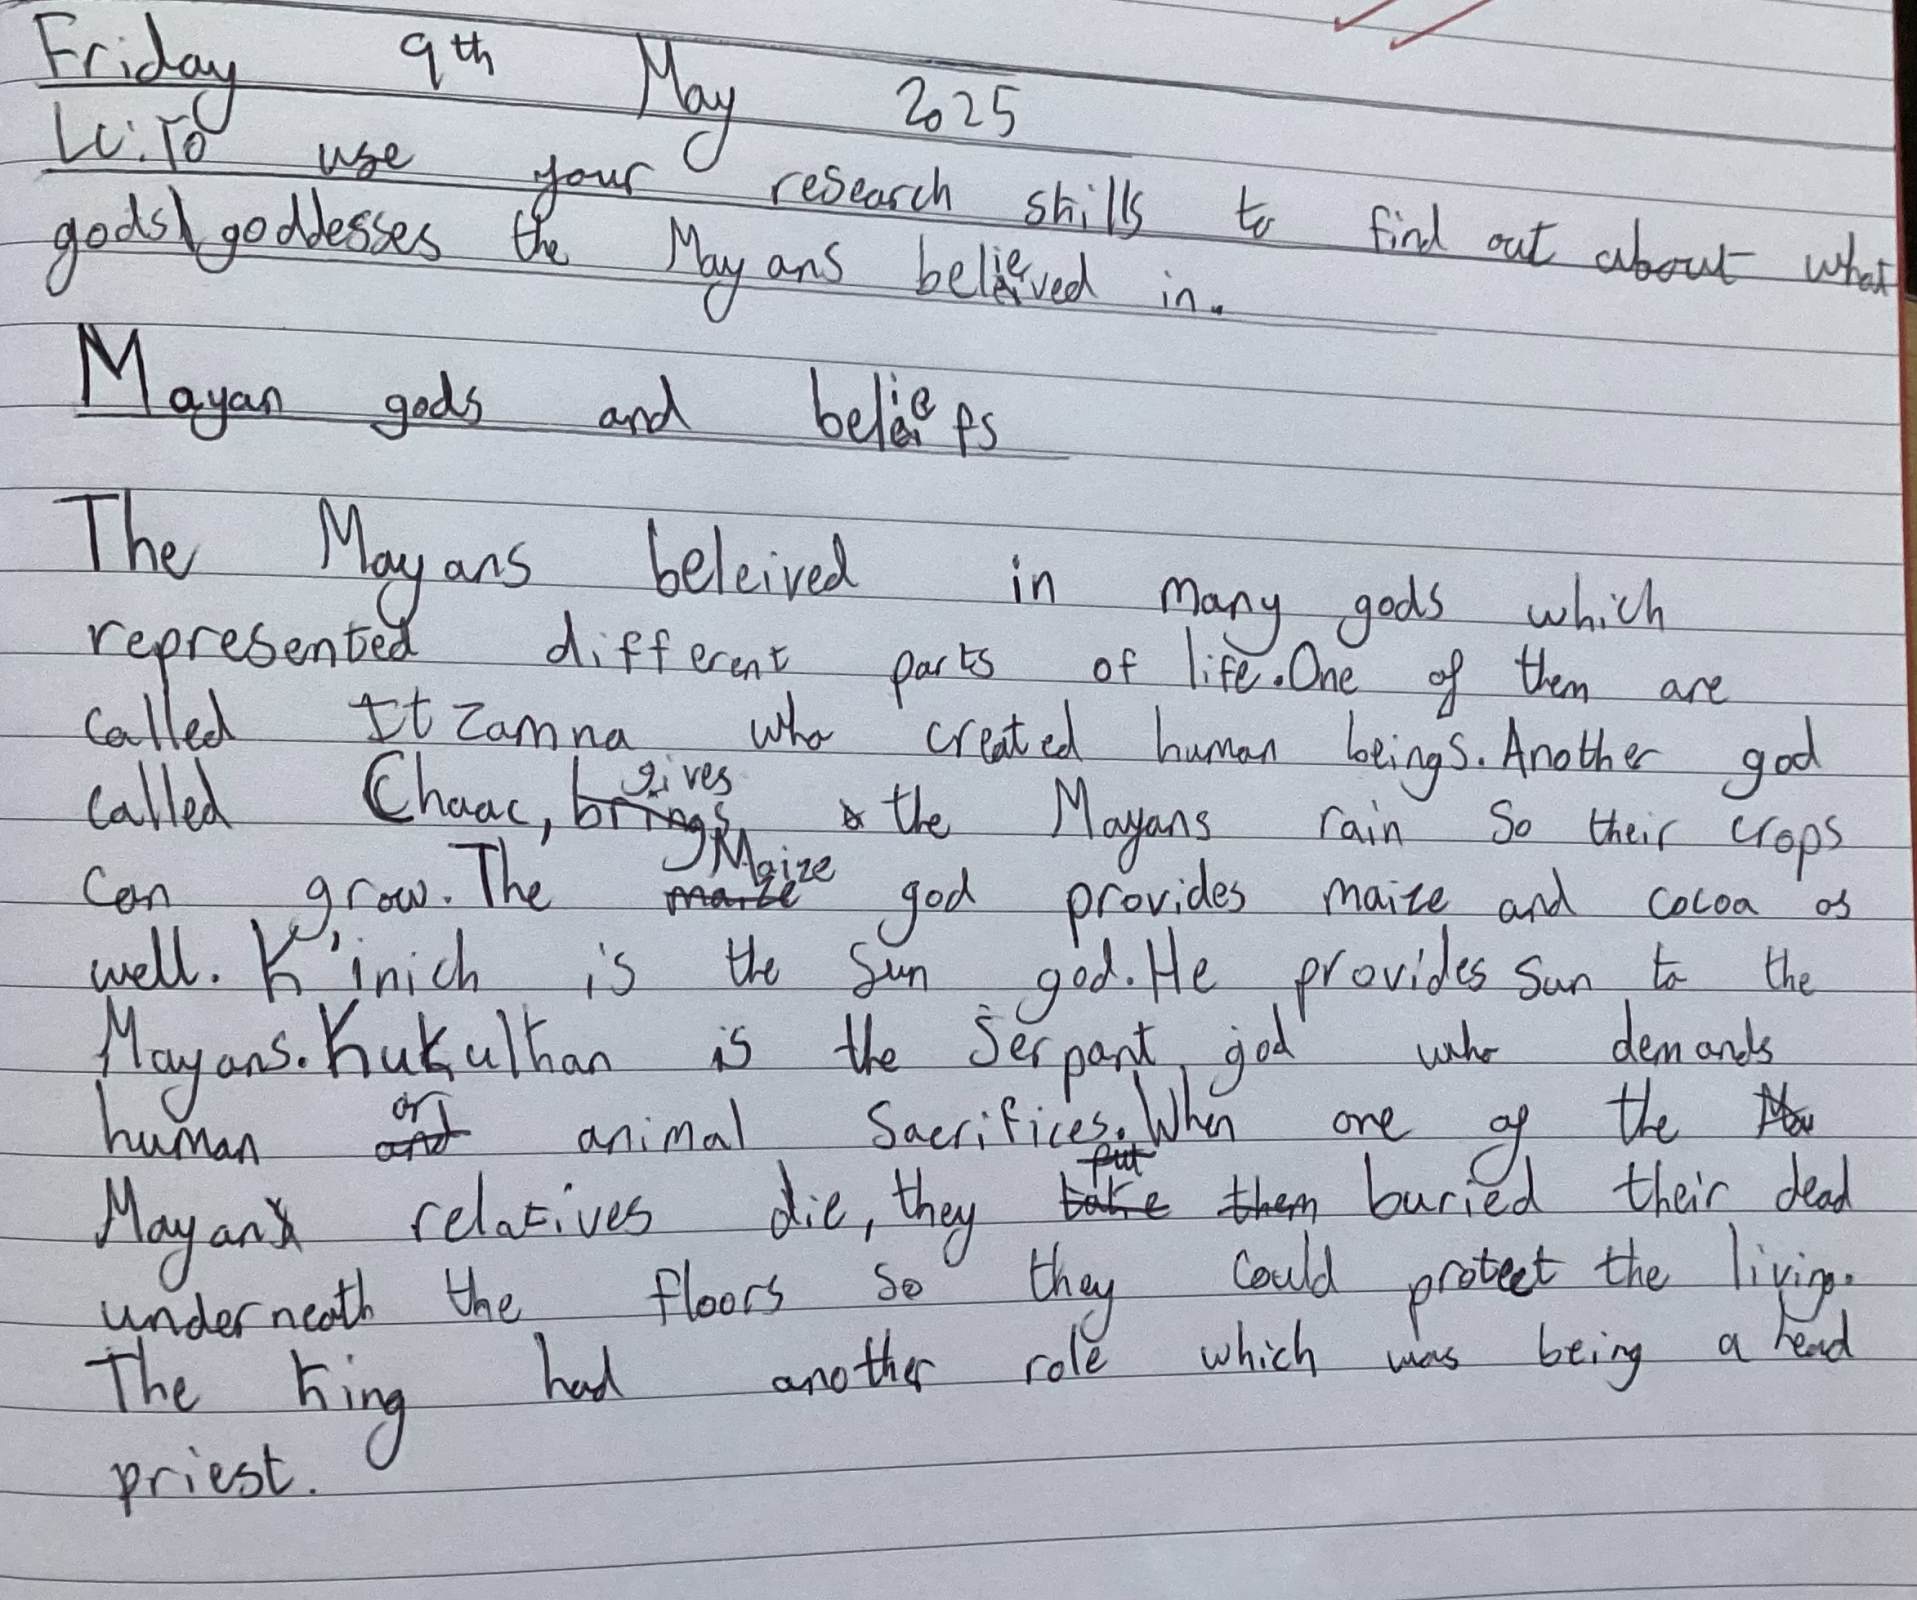 Friday 9th May 2025
LC: To use your research skills to find out about what
gods\goddesses the Mayans believed in.
Mayan gods and beliefs
The Mayans beleived in many gods which
represented different parts of life. One of them are
called Itzamna who created human beings. Another god
called Chaac, gives the Mayans rain so their crops
can grow. The Maize god provides maize and cocoa as
well. K'inich is the sun god. He provides sun to the
Mayans. Kukulkan is the serpant god who demands
human or animal sacrifices. When one of the
Mayan relatives die, they buried their dead
underneath the floors so they could protect the living.
The king had another role which was being a head
priest.